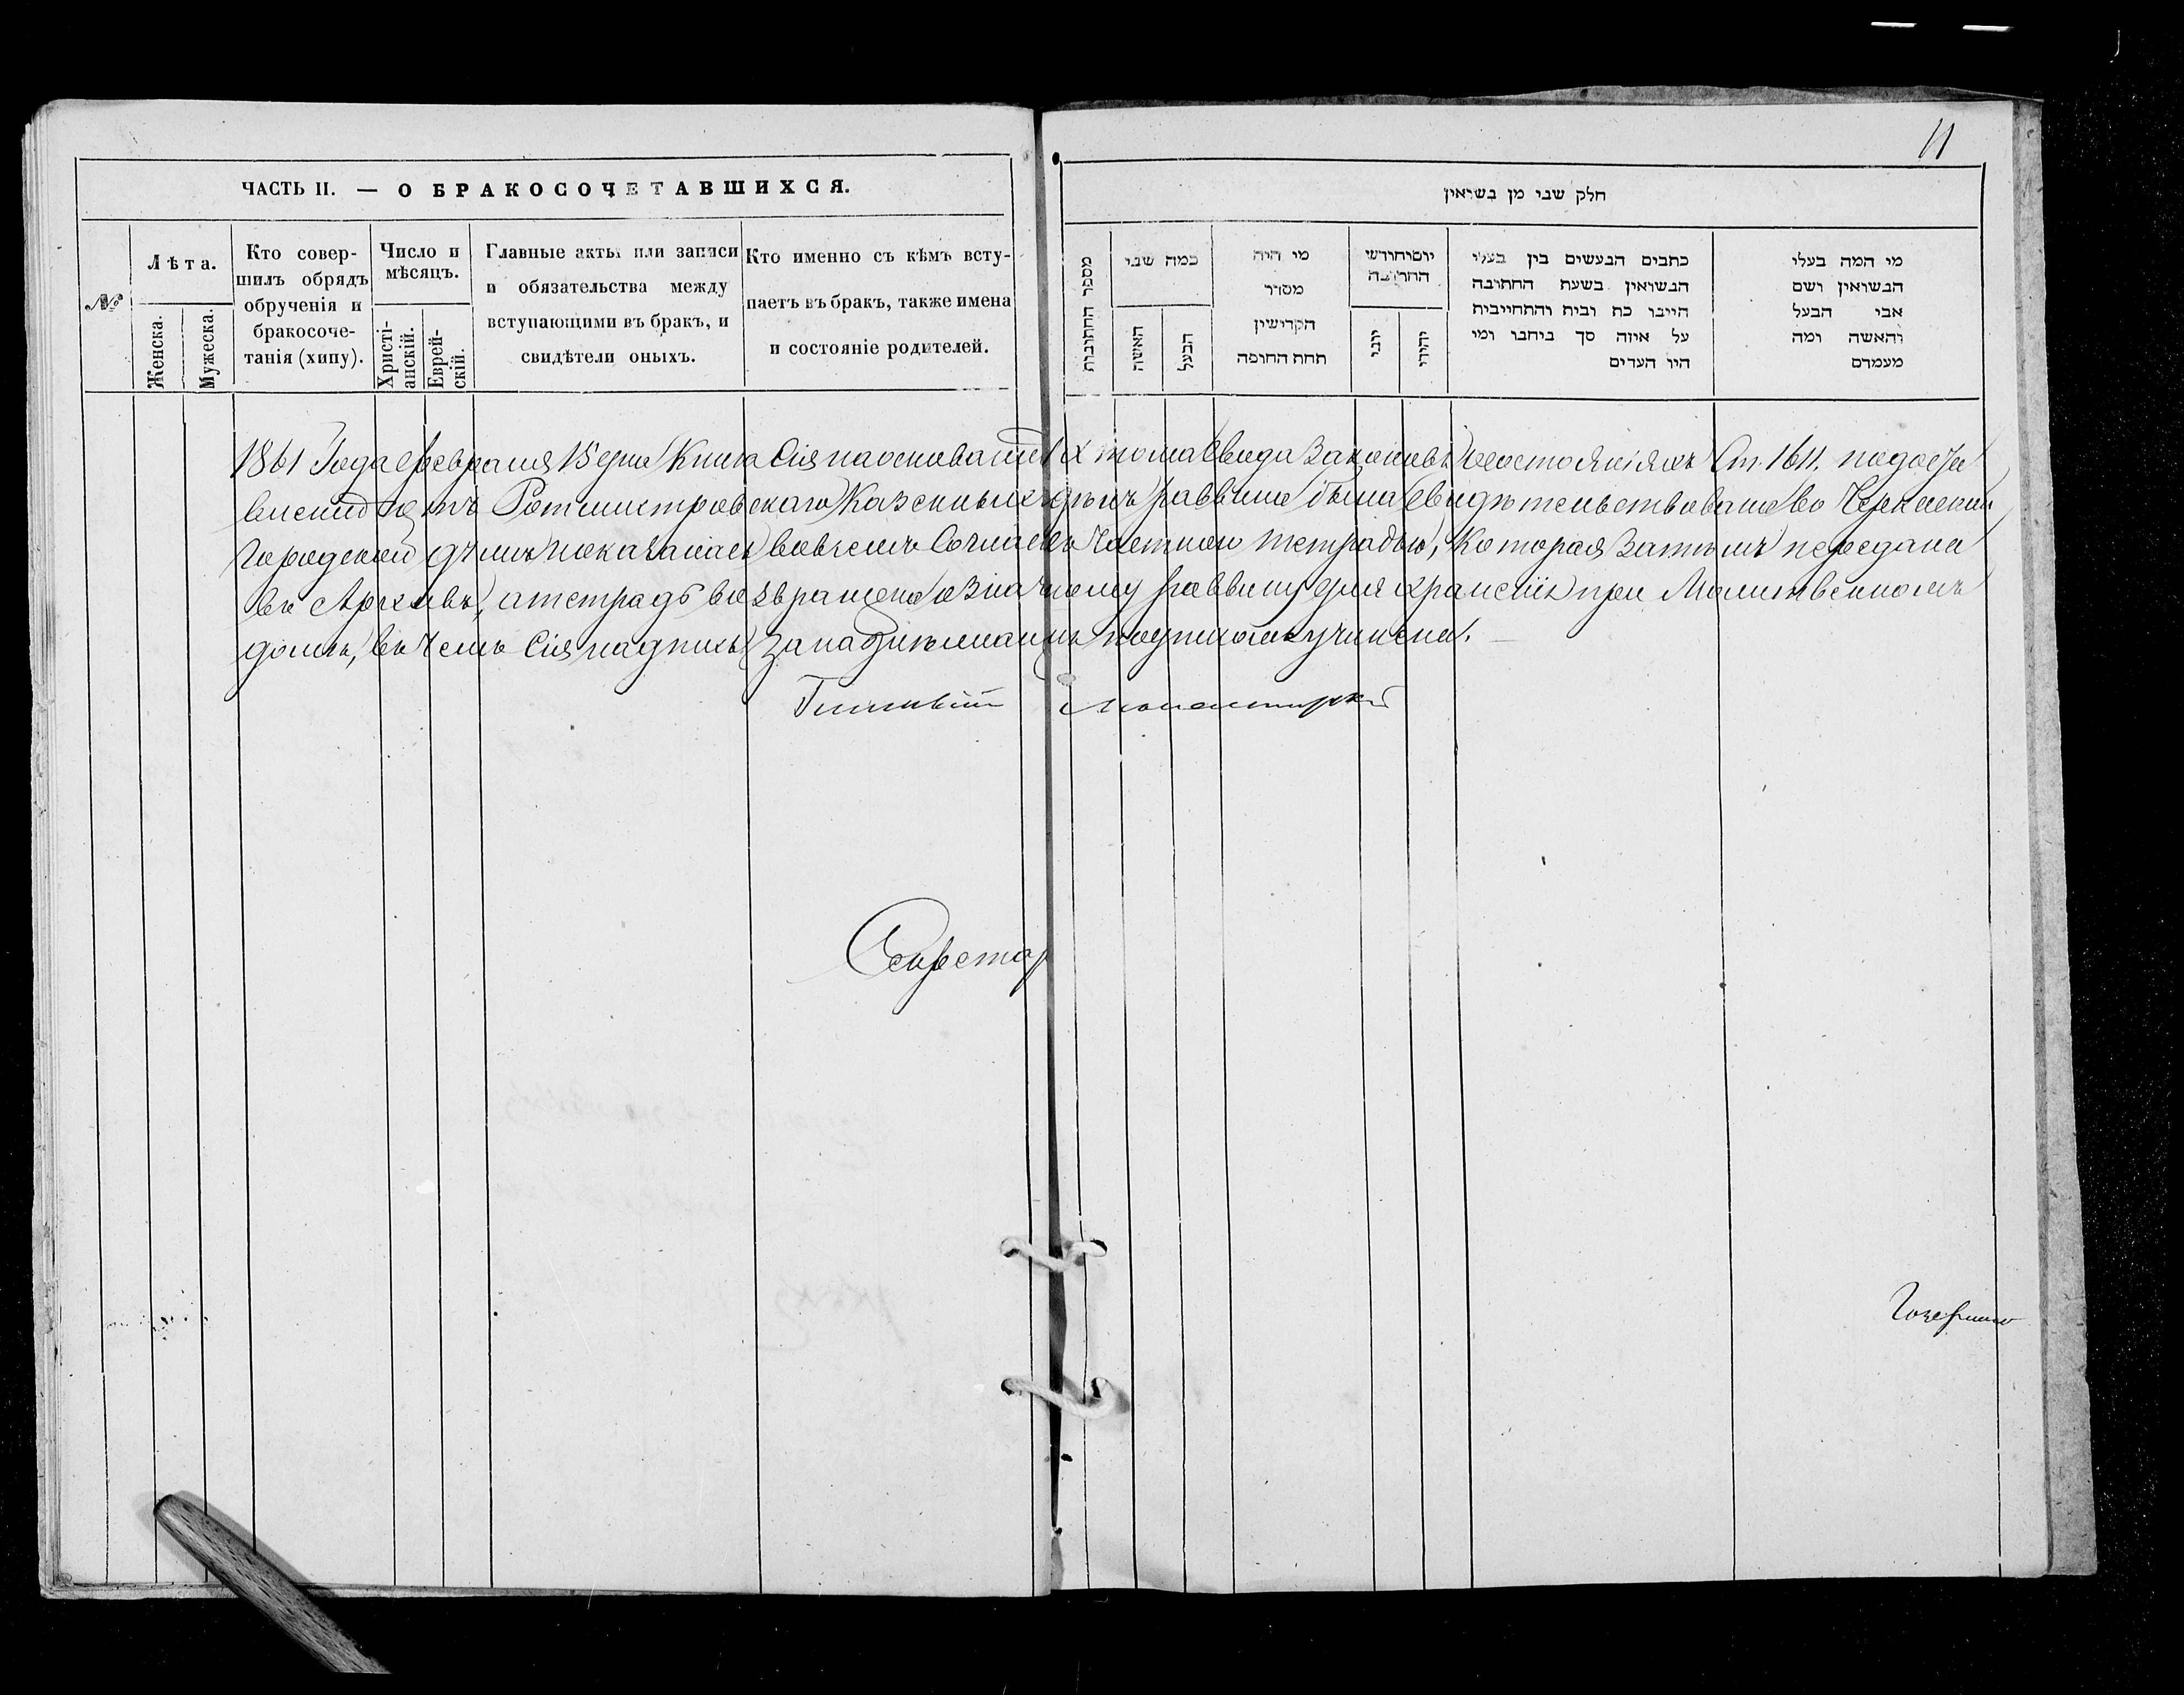 11
ЧАСТЬ II. — О БРАКОСОЧЕТАВШИХСЯ.
№
Лѣта.
Женска.
Мужеска.
Кто совер-
шилъ обрядъ
обрученія и
бракосоче-
танія (хипу).
Число и
мѣсяцъ.
Христі-
анскій.
Еврей-
скій.
Главные акты или записи
и обязательства между
вступающими въ бракъ, и
свидѣтели оныхъ.
Кто именно съ кѣмъ всту-
паетъ въ бракъ, также имена
и состояніе родителей.
חלק שני מן נשואין
מספר החתונות
כמה שני
האשה
הבעל
מי היה
מסדר
הקדישין
תחת החופה
יום וחודש
החתונה
יוני
יהודי
כתבים הנעשים בין בעלי
הנשואין בשעת החתונה
היינו כח ובית והתחייבות
על איזה סך ביחנו ומי
היו העדים
מי המה בעלי
הנשואין ושם
אבי הבעל
והאשה ומה
מעמדם
1861 Года февраля 15 дня Книга Сія на основаніи IX тома Свода Законовъ о состояніяхъ Ст. 1611. по
Ротмистровскаго Казеннымъ раввина была свидѣтельствована во Черкаской
Городской думѣ и оказалась во всемъ Согласна съ Частною тетрадью, Которая Затѣмъ передана
въ Архивъ, а тетрадь возвращена раввину для храненія при Молитвенномъ
домѣ, въ Чемъ Сія надпись За надлежащимъ подписомъ учинена.
Гласный Монастырскій
Секретар